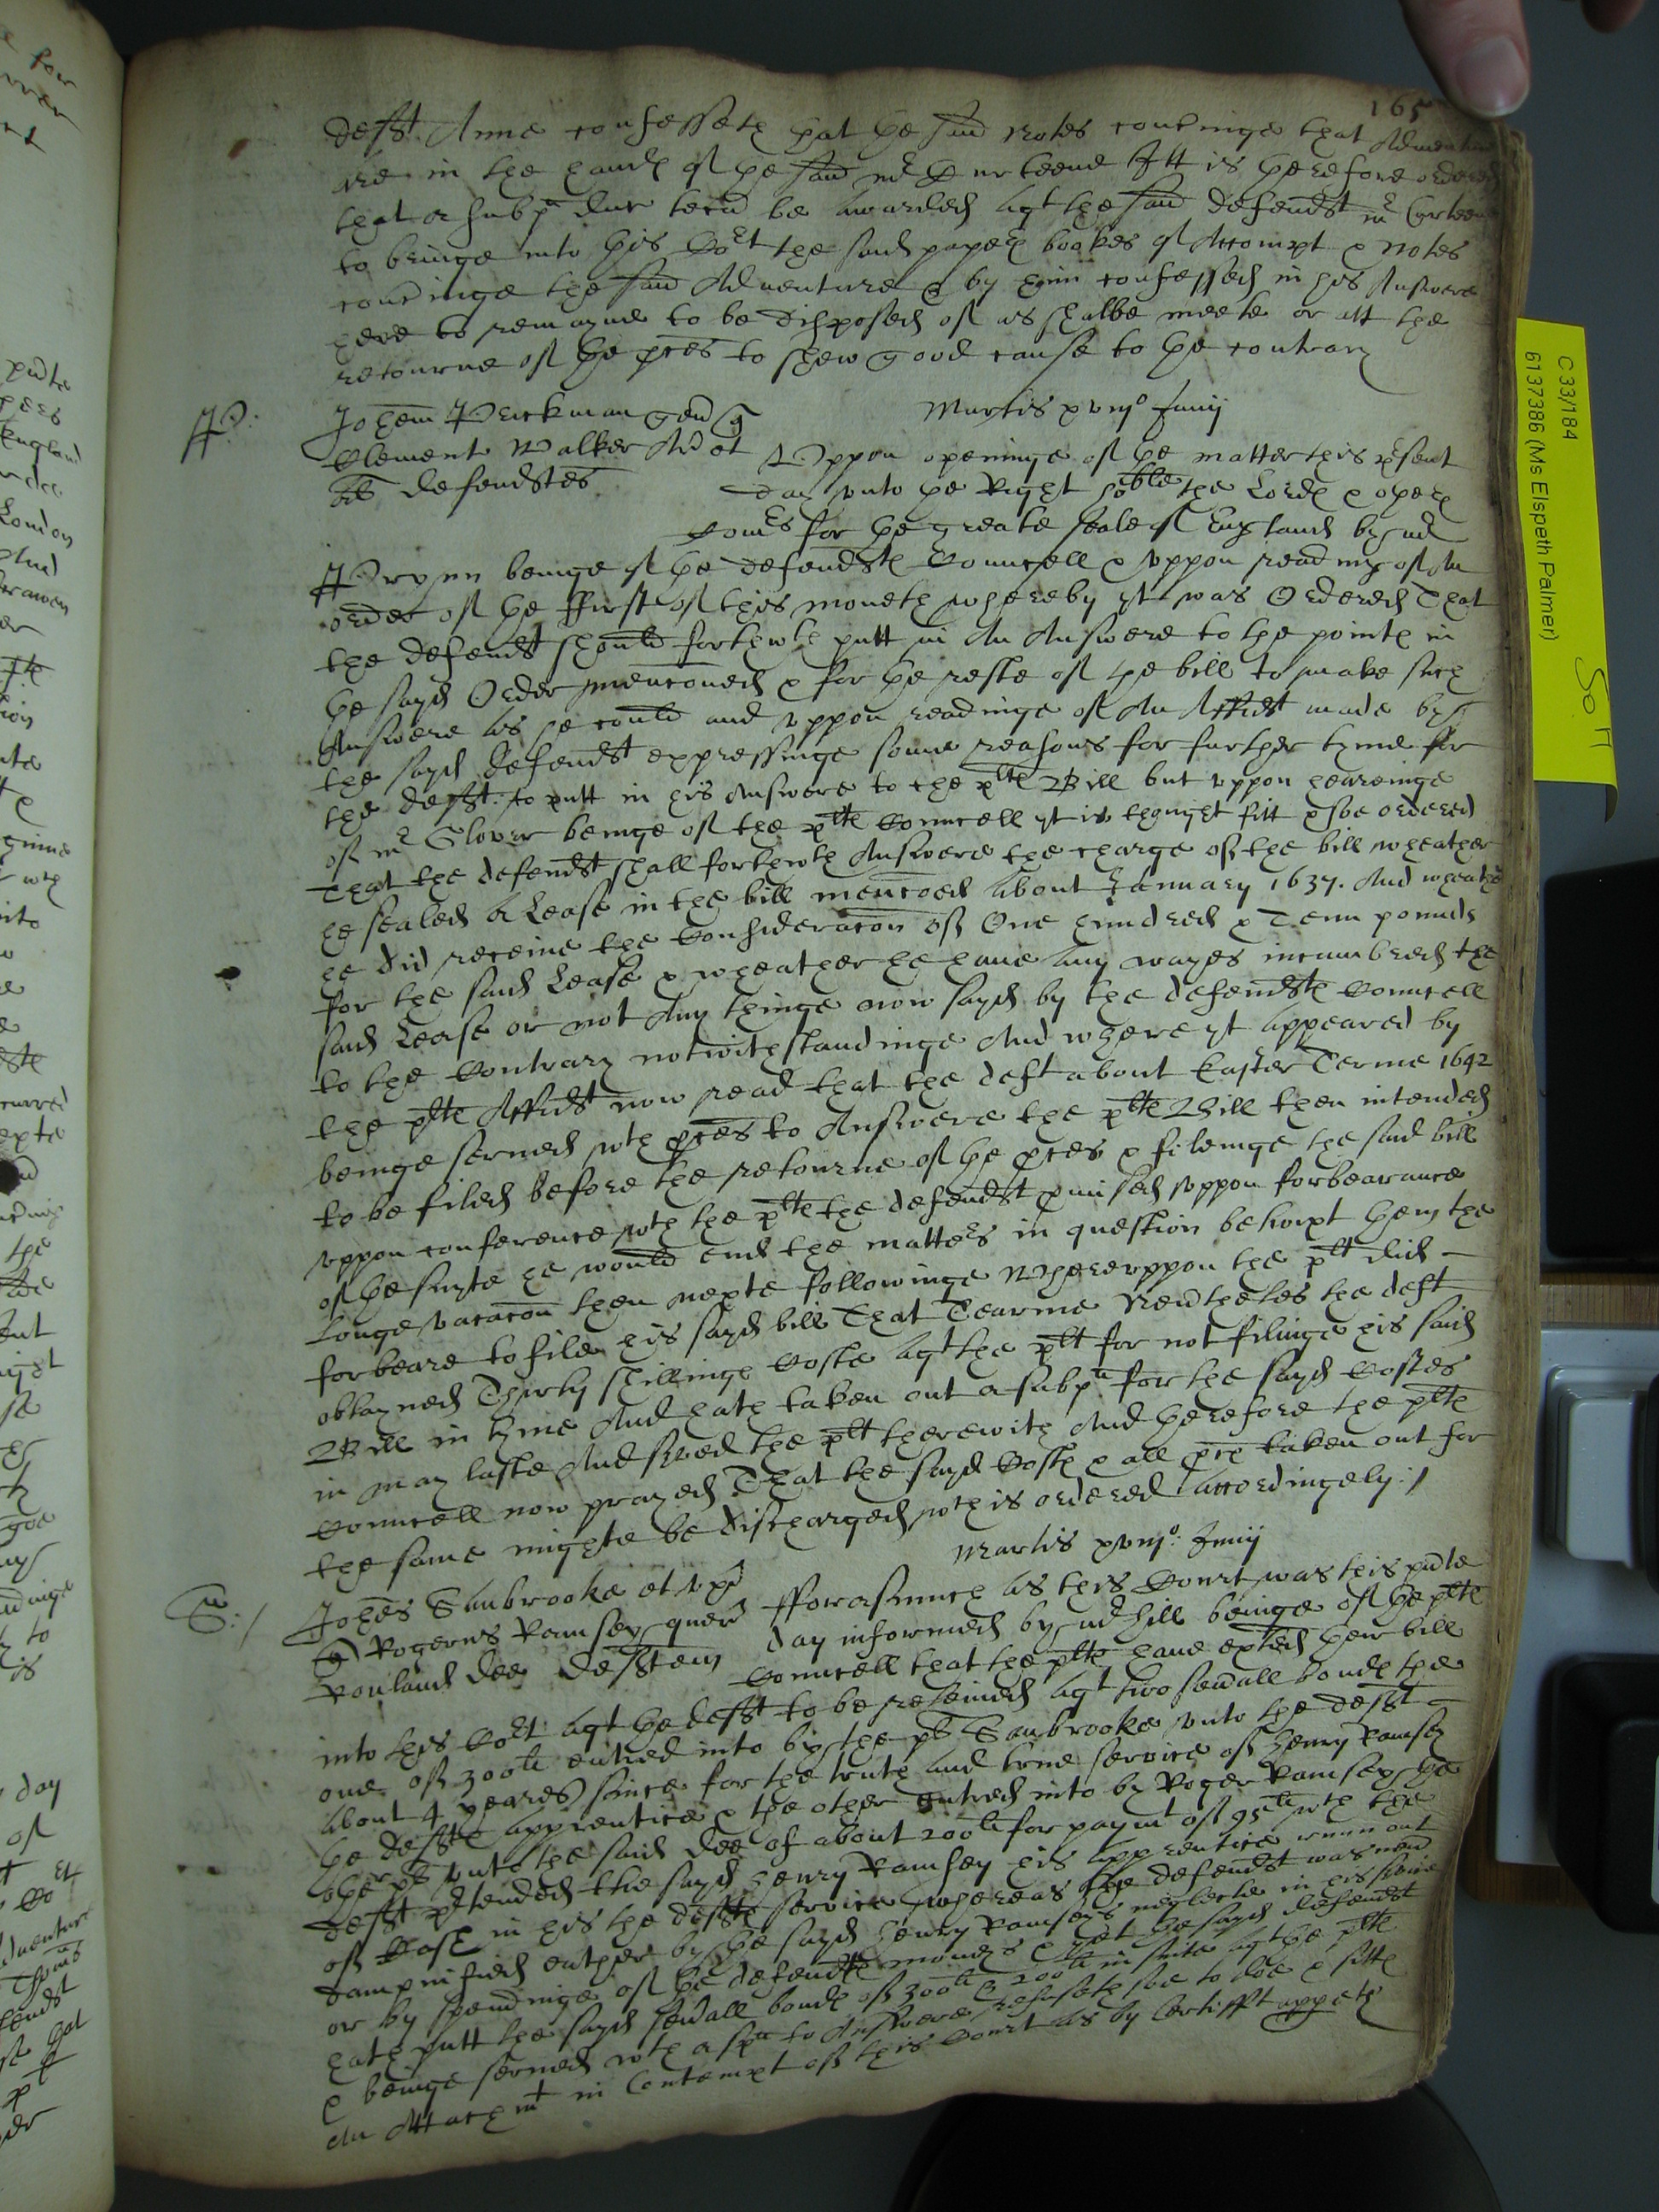 165
defft. Anne confesseth that the said notes concinge that Adventure
are in the hands of the said mr Curteene Itt is therefore ordered
that a subpa duc tecu be awarded agt the said defendt mr Curteene
to bringe into this Cort the said papers bookes of Accompt & notes
concinge the said Adventure & by him confessed in his Answere
here to remayne to be disposed of as shalbe meete or att the
retourne of the pces to shew good cause to the contrary
Martis xvijo Junij
P:
Johem Prickman gen q
Clement Walker Ar et
als defendtes
Uppon openinge of the matter this psent
day unto the Right hoble the Lords & other
Comrs for the greate seale of England by mr
Prynn beinge of the defendts Councell & uppon readinge of An
order of the ffirst of this moneth whereby yt was Ordered That
the defendt should forthwth putt in An Answere to the points in
the sayd Order mencioned & for the reste of the bill to make such
Answere as he could and uppon readinge of An Affidt made by
the sayd defendt expressinge some reasons for further tyme for
the defft. to putt in his Answere to the plts Bill but uppon heareinge
of mr Glover beinge of the plts Councell yt is thought fitt & soe ordered
That the defendt shall forthwth Answere the charge of the bill wheather
he sealed a Lease in the bill mencoed About January 1637. And wheather
he did receive the Consideracon of One hundred & Tenn pounds
for the said Lease & wheather he have any wayes incumbred the
said Lease or not Any thinge now sayd by the defendts Councell
to the Contrary notwithstandinge And where yt appeared by
the plts Affidt now read that the deft about Easter Terme 1642
beinge served wth pces to Answere the plts Bill then intended
to be filed before the retourne of the pces & fileinge the said bill
uppon conference wth the plt the defendt pmised uppon forbearance
of the suyte he would end the matters in question betwixt them the
Longe vacacon then nexte followinge Whereuppon the plt did
forbeare to file his sayd bill That Tearme Neverthelès the deft
obtayned Thirty shillings Costs agt the plt for not filinge his said
Bill in tyme And hath taken out a subpa for the sayd Costes
in may laste And served the plt therewith And therefore the plts
Councell now prayed That the sayd Costs & all pces taken out for
the same mighte be discharged wch is ordered accordingely:/
Martis xvijo: Junij
S:/
Johes Sanbrooke et ux
& Rogerus Ramsey quer
Rouland Dee Defftem
Fforasmuch as this Court was this pnte
day informed by mr Hill beinge of the plts
Councell that the plts have exhted their bill
into this Cort agt the defft to be releived agt two sevall bonds the
one of 300li entred into by the pl Sanbrooke unto the defft
about 4 yeares since for the truth and true service of Henry Ramsey
the deffts apprentice & the other entred into by Roger Ramsey the
other pl unto the said Dee of about 200li for paymt of 95li wch the
defft ptended the sayd Henry Ramsey his apprentice runn out
of Cash in his the deffts service whereas the defendt was nevr
dampnified either by the sayd Henry Ramseys neglecte in his service
or by spendinge of the defendts monyes & yet the sayd defendt
hath putt the sayd sevall bonds of 300li & 200li in suite agt the plts
& beinge served wth a spa to Answere refuseth soe to doe & sitts
An Attachmt in Contempt of this Court as by Certifft appeth
C 33/184
6137386 (Ms Elspeth Palmer)